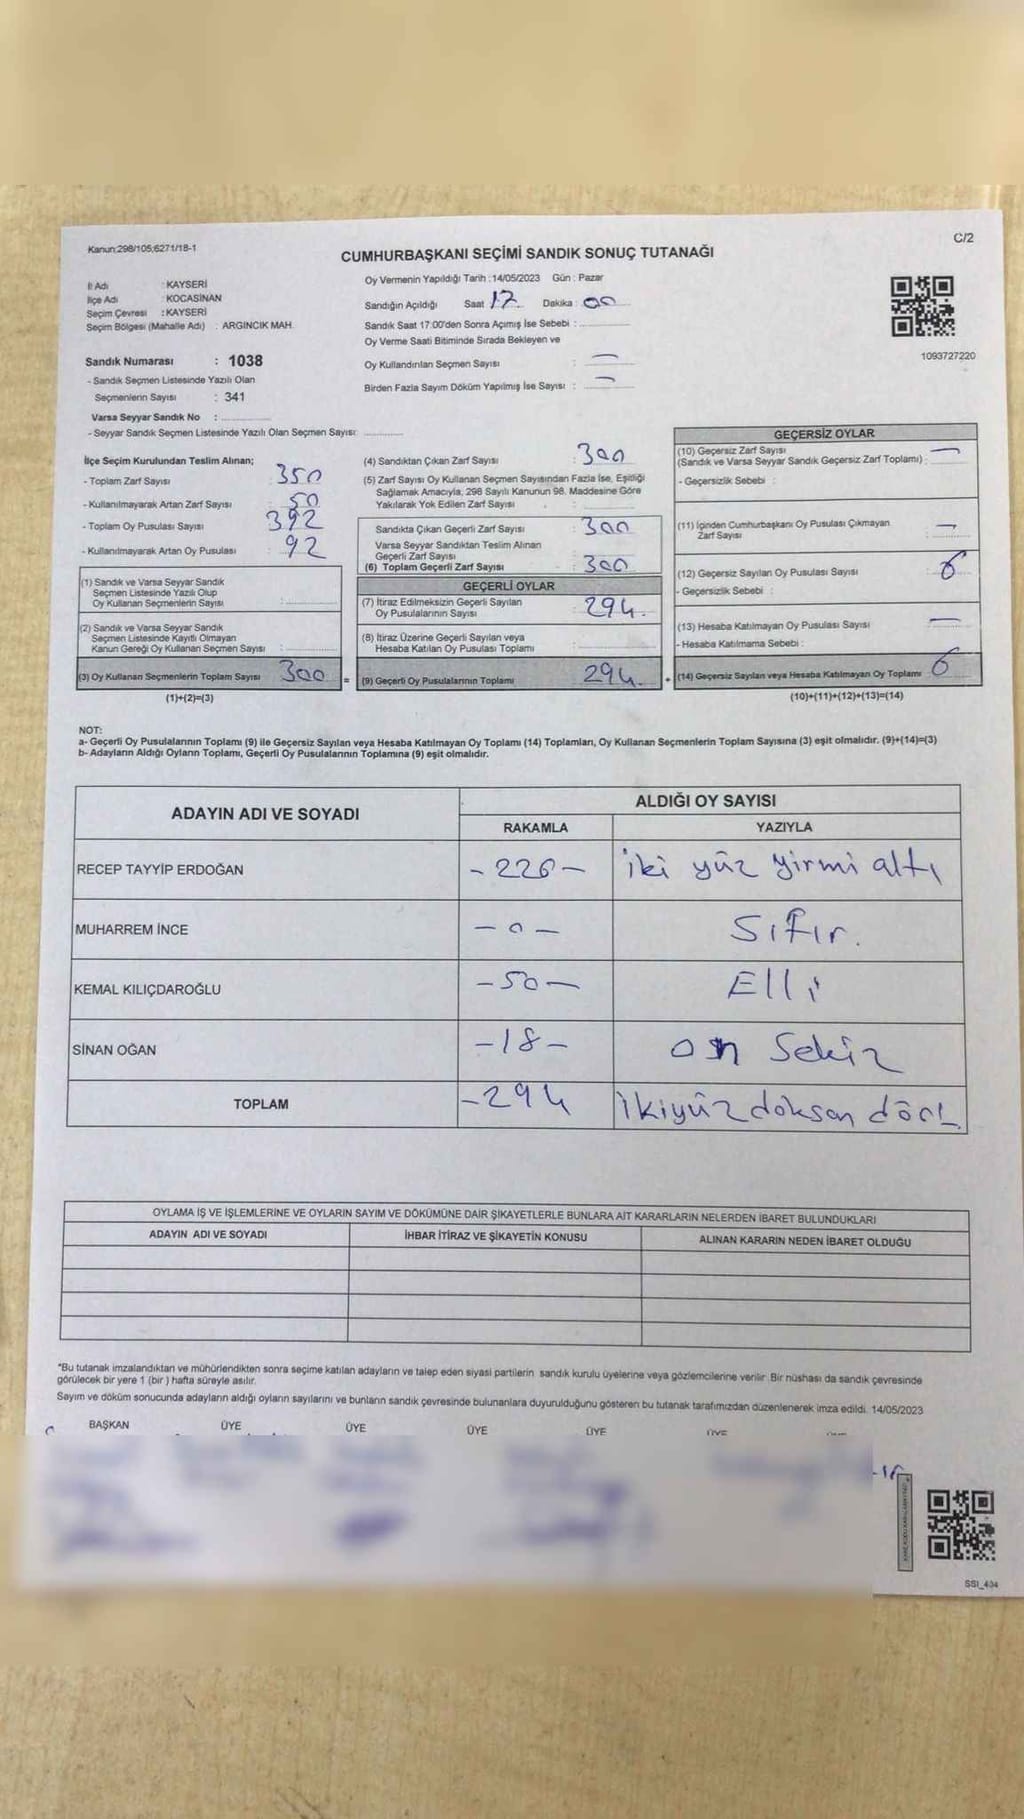 Kanun:298/105;6271/18-1
C/2
CUMHURBAŞKANI SEÇİMİ SANDIK SONUÇ TUTANAĞI
İl Adı : KAYSERİ
İlçe Adı : KOCASİNAN
Seçim Çevresi : KAYSERİ
Seçim Bölgesi (Mahalle Adı) : ARGINCIK MAH.
Oy Vermenin Yapıldığı Tarih :14/05/2023 Gün : Pazar
Sandığın Açıldığı Saat 17 Dakika : 00
Sandık Saat 17:00'den Sonra Açımış İse Sebebi :
Oy Verme Saati Bitiminde Sırada Bekleyen ve
Oy Kullandırılan Seçmen Sayısı : —
Birden Fazla Sayım Döküm Yapılmış İse Sayısı : —
1093727220
Sandık Numarası : 1038
- Sandık Seçmen Listesinde Yazılı Olan
Seçmenlerin Sayısı : 341
Varsa Seyyar Sandık No :
- Seyyar Sandık Seçmen Listesinde Yazılı Olan Seçmen Sayısı:
İlçe Seçim Kurulundan Teslim Alınan;
- Toplam Zarf Sayısı : 350
- Kullanılmayarak Artan Zarf Sayısı : 50
- Toplam Oy Pusulası Sayısı : 392
- Kullanılmayarak Artan Oy Pusulası : 92
(1) Sandık ve Varsa Seyyar Sandık
Seçmen Listesinde Yazılı Olup
Oy Kullanan Seçmenlerin Sayısı :
(2) Sandık ve Varsa Seyyar Sandık
Seçmen Listesinde Kayıtlı Olmayan
Kanun Gereği Oy Kullanan Seçmen Sayısı :
(3) Oy Kullanan Seçmenlerin Toplam Sayısı 300
(1)+(2)=(3)
(4) Sandıktan Çıkan Zarf Sayısı : 300
(5) Zarf Sayısı Oy Kullanan Seçmen Sayısından Fazla İse, Eşitliği
Sağlamak Amacıyla, 298 Sayılı Kanunun 98. Maddesine Göre
Yakılarak Yok Edilen Zarf Sayısı :
Sandıkta Çıkan Geçerli Zarf Sayısı : 300
Varsa Seyyar Sandıktan Teslim Alınan
Geçerli Zarf Sayısı :
(6) Toplam Geçerli Zarf Sayısı : 300
GEÇERLİ OYLAR
(7) İtiraz Edilmeksizin Geçerli Sayılan
Oy Pusulalarının Sayısı : 294.
(8) İtiraz Üzerine Geçerli Sayılan veya
Hesaba Katılan Oy Pusulası Toplamı :
= (9) Geçerli Oy Pusulalarının Toplamı 294.
GEÇERSİZ OYLAR
(10) Geçersiz Zarf Sayısı
(Sandık ve Varsa Seyyar Sandık Geçersiz Zarf Toplamı) : —
- Geçersizlik Sebebi :
(11) İçinden Cumhurbaşkanı Oy Pusulası Çıkmayan
Zarf Sayısı : —
(12) Geçersiz Sayılan Oy Pusulası Sayısı : 6
- Geçersizlik Sebebi :
(13) Hesaba Katılmayan Oy Pusulası Sayısı : —
- Hesaba Katılmama Sebebi :
+ (14) Geçersiz Sayılan veya Hesaba Katılmayan Oy Toplamı 6
(10)+(11)+(12)+(13)=(14)
NOT:
a- Geçerli Oy Pusulalarının Toplamı (9) ile Geçersiz Sayılan veya Hesaba Katılmayan Oy Toplamı (14) Toplamları, Oy Kullanan Seçmenlerin Toplam Sayısına (3) eşit olmalıdır. (9)+(14)=(3)
b- Adayların Aldığı Oyların Toplamı, Geçerli Oy Pusulalarının Toplamına (9) eşit olmalıdır.
ADAYIN ADI VE SOYADI
ALDIĞI OY SAYISI
RAKAMLA YAZIYLA
RECEP TAYYİP ERDOĞAN - 226 - iki yüz yirmi altı
MUHARREM İNCE - 0 - Sıfır.
KEMAL KILIÇDAROĞLU - 50 - Elli
SİNAN OĞAN - 18 - on Sekiz
TOPLAM - 294 ikiyüz doksan dört
OYLAMA İŞ VE İŞLEMLERİNE VE OYLARIN SAYIM VE DÖKÜMÜNE DAİR ŞİKAYETLERLE BUNLARA AİT KARARLARIN NELERDEN İBARET BULUNDUKLARI
ADAYIN ADI VE SOYADI İHBAR İTİRAZ VE ŞİKAYETİN KONUSU ALINAN KARARIN NEDEN İBARET OLDUĞU
*Bu tutanak imzalandıktan ve mühürlendikten sonra seçime katılan adayların ve talep eden siyasi partilerin sandık kurulu üyelerine veya gözlemcilerine verilir. Bir nüshası da sandık çevresinde
görülecek bir yere 1 (bir ) hafta süreyle asılır.
Sayım ve döküm sonucunda adayların aldığı oyların sayılarını ve bunların sandık çevresinde bulunanlara duyurulduğunu gösteren bu tutanak tarafımızdan düzenlenerek imza edildi. 14/05/2023
BAŞKAN ÜYE ÜYE ÜYE ÜYE ÜYE
SSI_404